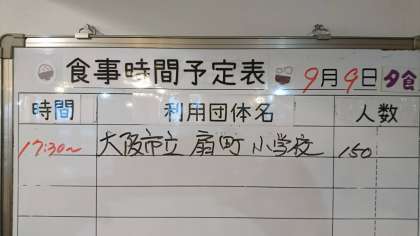 食事時間予定表 9月9日 夕食
時間 利用団体名 人数
17:30~ 大阪市立 扇町小学校 150